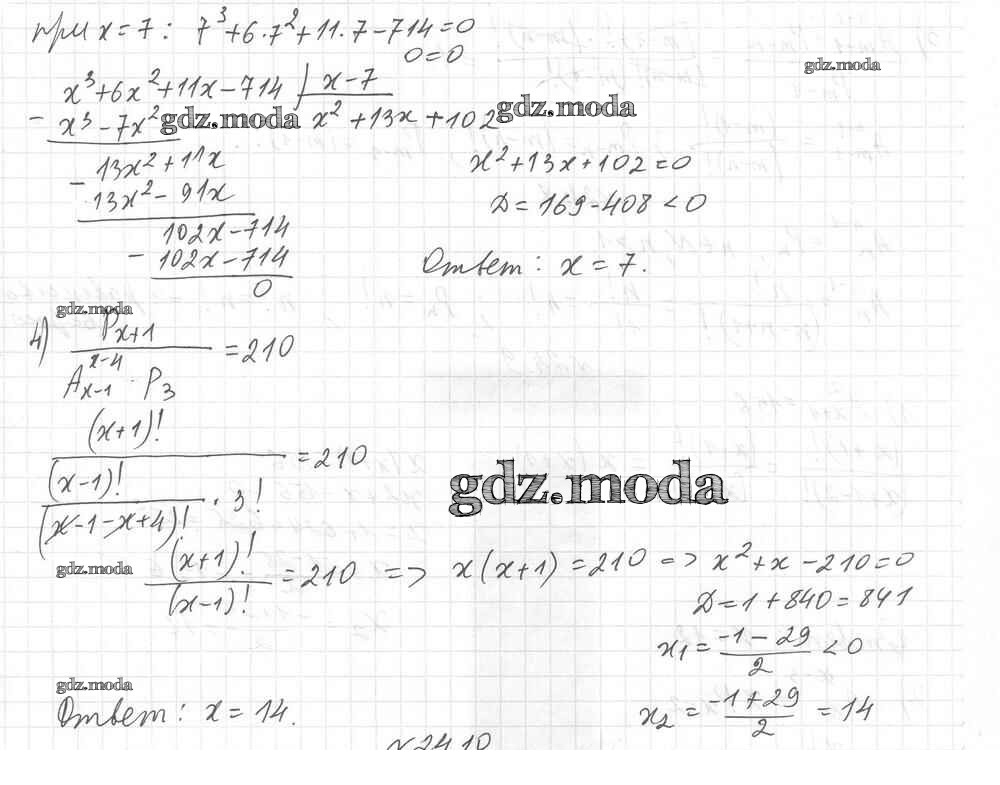 при x = 7 : 7³ + 6·7² + 11·7 - 714 = 0
0 = 0
gdz.moda
x³ + 6x² + 11x - 714 | x - 7
- x³ - 7x² gdz.moda x² + 13x + 102 gdz.moda
13x² + 11x
x² + 13x + 102 = 0
- 13x² - 91x
D = 169 - 408 < 0
102x - 714
- 102x - 714
Ответ : x = 7.
0
gdz.moda
4) P_{x+1} / (A_{x-1}^{x-4} · P_3) = 210
(x+1)! / ((x-1)! / (x-1-x+4)! · 3!) = 210
gdz.moda
gdz.moda
(x+1)! / (x-1)! = 210 => x(x+1) = 210 => x² + x - 210 = 0
D = 1 + 840 = 841
x₁ = (-1 - 29) / 2 < 0
gdz.moda
Ответ : x = 14.
x₂ = (-1 + 29) / 2 = 14
№ 24.10